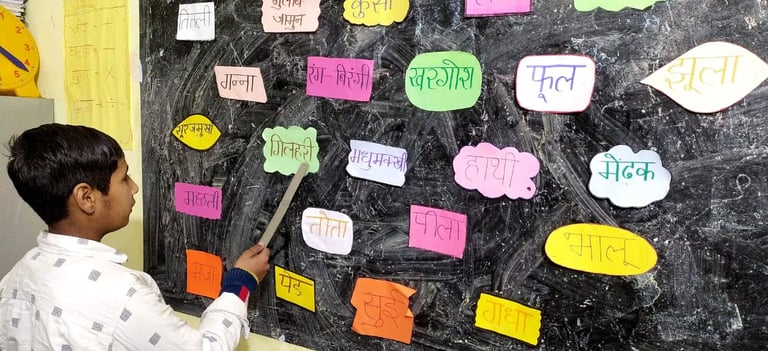 तितली
गुलाब-
जामुन
कुर्सी
गन्ना
रंग-बिरंगी
खरगोश
फूल
झूला
सूरजमुखी
गिलहरी
मधुमक्खी
हाथी
मेंढक
मछली
तोता
पीला
भालू
मजा
पेड
सुई
गधा